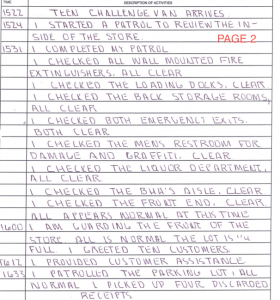 TIME DESCRIPTION OF ACTIVITIES
1522 TEEN CHALLENGE VAN ARRIVES
1524 I STARTED A PATROL TO REVIEW THE IN-
SIDE OF THE STORE. PAGE 2
1531 I COMPLETED MY PATROL
I CHECKED ALL WALL MOUNTED FIRE
EXTINGUISHERS, ALL CLEAR
I CHECKED THE LOADING DOCKS, CLEAR
I CHECKED THE BACK STORAGE ROOMS,
ALL CLEAR
I CHECKED BOTH EMERGENCY EXITS.
BOTH CLEAR
I CHECKED THE MENS RESTROOM FOR
DAMAGE AND GRAFFITI. CLEAR
I CHECKED THE LIQUOR DEPARTMENT,
ALL CLEAR
I CHECKED THE AISLE, CLEAR
I CHECKED THE FRONT END, CLEAR
ALL APPEARS NORMAL AT THIS TIME
1600 I AM GUARDING THE FRONT OF THE
STORE ALL IS NORMAL THE LOT IS
FULL I GREETED TEN CUSTOMERS
1612 I PROVIDED CUSTOMER ASSISTANCE
1633 I PATROLLED THE PARKING LOT, ALL
NORMAL I PICKED UP FOUR DISCARDED
RECEIPTS